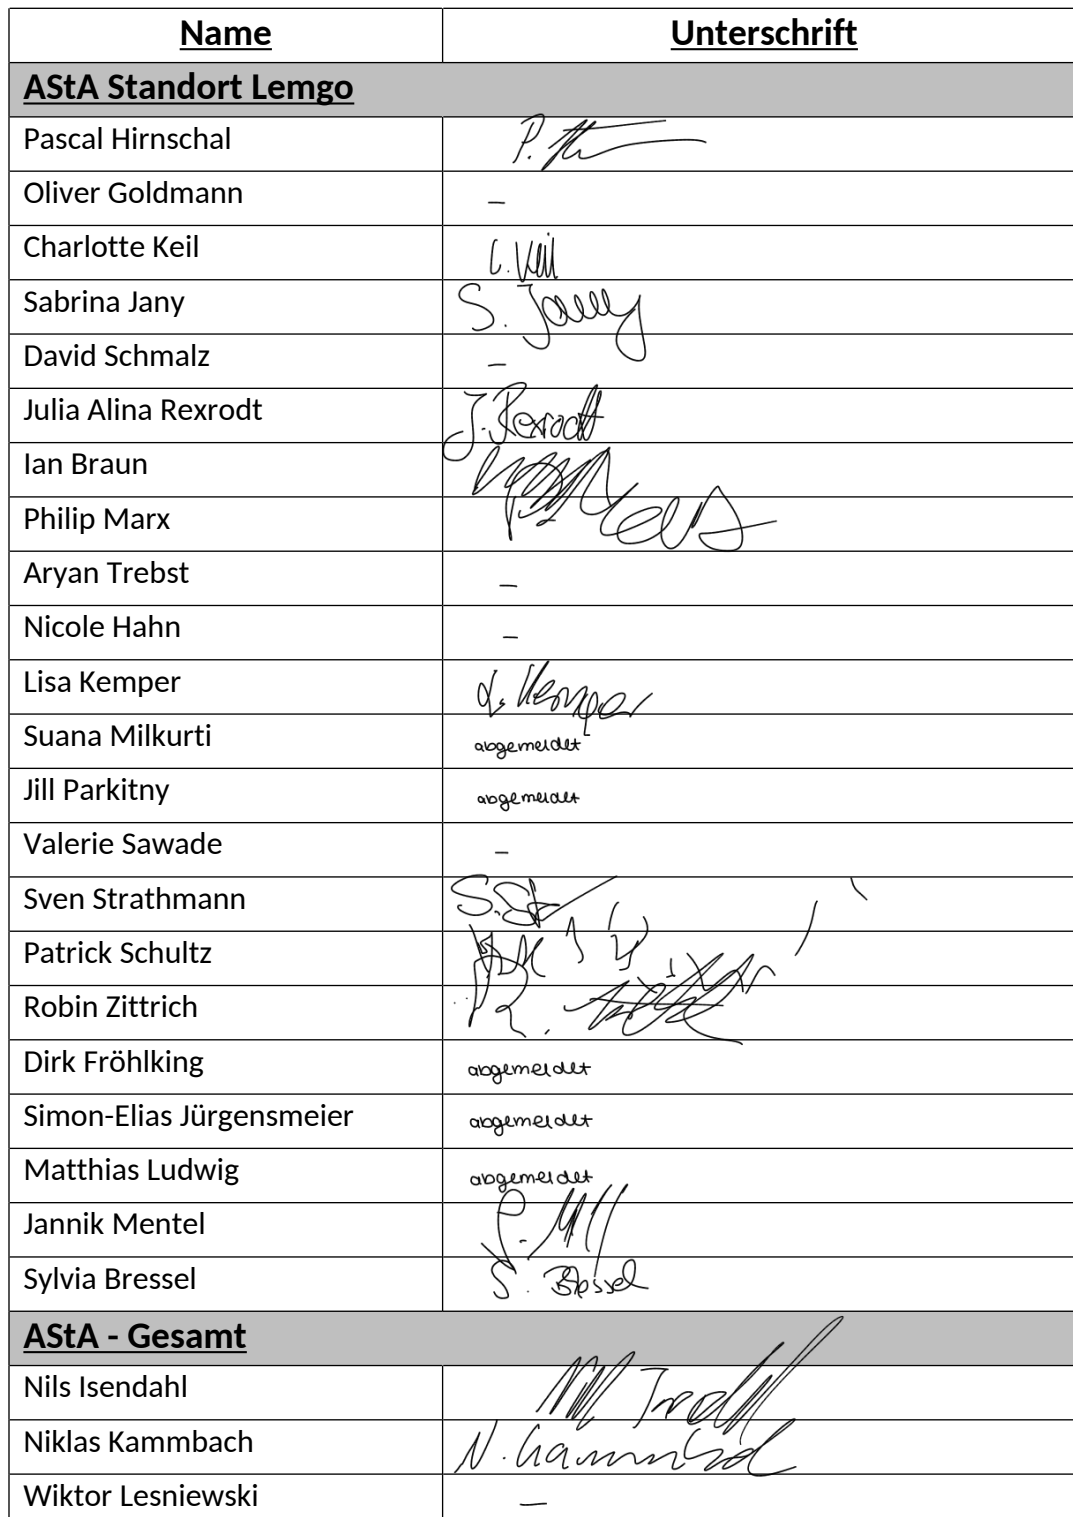 Name Unterschrift
AStA Standort Lemgo
Pascal Hirnschal P.
Oliver Goldmann –
Charlotte Keil C. Keil
Sabrina Jany S. Jany
David Schmalz –
Julia Alina Rexrodt J. Rexrodt
Ian Braun
Philip Marx
Aryan Trebst –
Nicole Hahn –
Lisa Kemper L. Kemper
Suana Milkurti abgemeldet
Jill Parkitny abgemeldet
Valerie Sawade –
Sven Strathmann S. St
Patrick Schultz
Robin Zittrich R.
Dirk Fröhlking abgemeldet
Simon-Elias Jürgensmeier abgemeldet
Matthias Ludwig abgemeldet
Jannik Mentel
Sylvia Bressel S. Bressel
AStA - Gesamt
Nils Isendahl
Niklas Kammbach N. Kammbach
Wiktor Lesniewski –